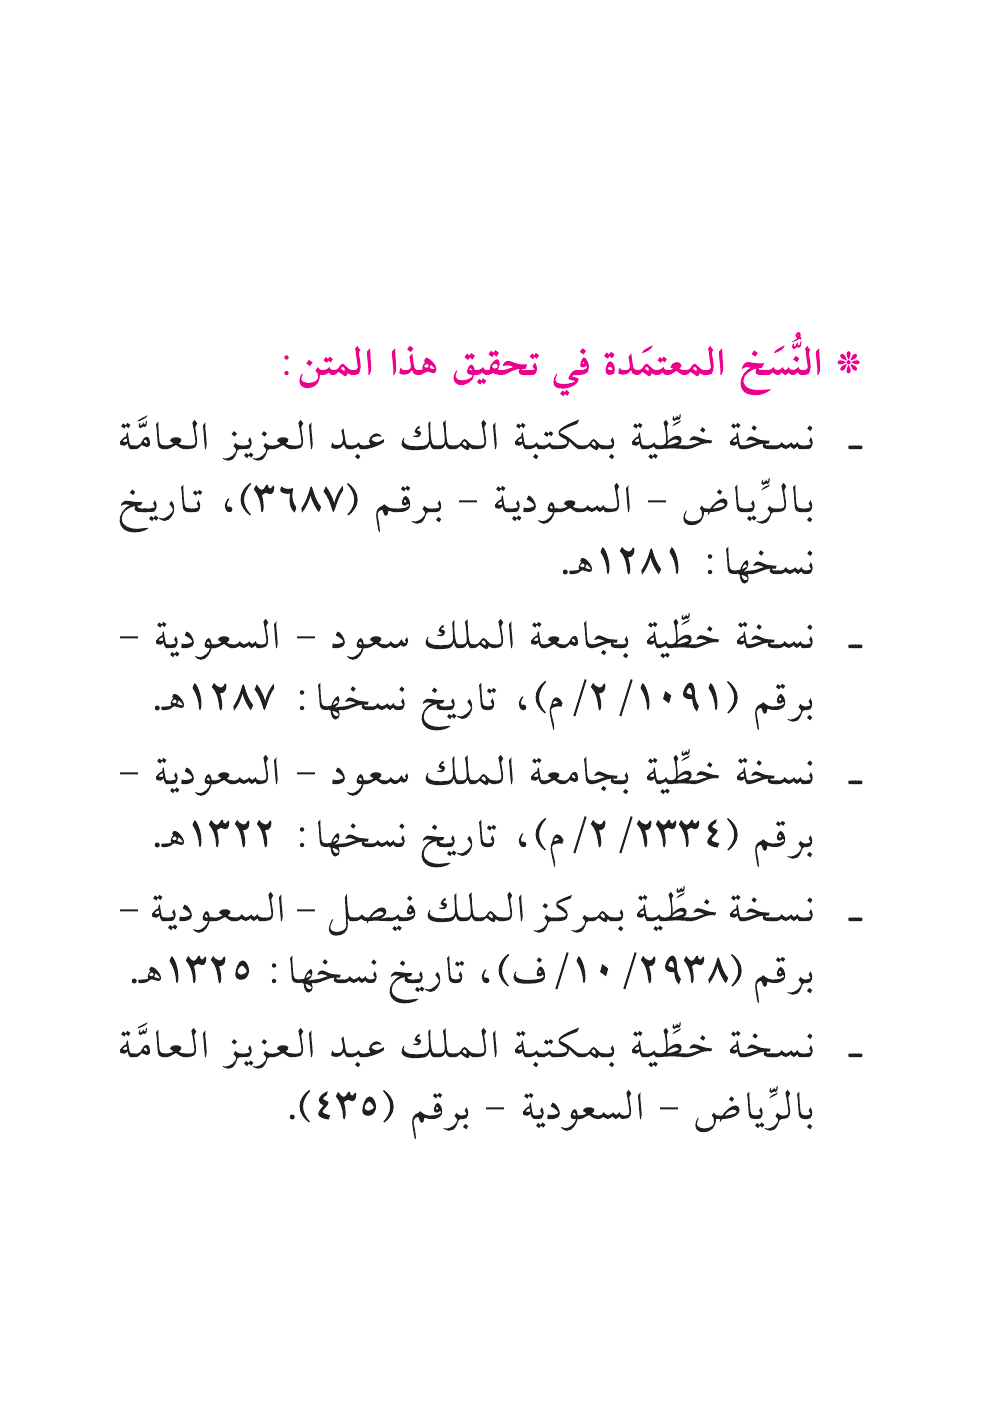 ❊ النُّسَخ المعتمَدة في تحقيق هذا المتن:
ـ نسخة خطِّية بمكتبة الملك عبد العزيز العامَّة
بالرِّياض – السعودية – برقم (٣٦٨٧)، تاريخ
نسخها: ١٢٨١هـ.
ـ نسخة خطِّية بجامعة الملك سعود – السعودية –
برقم (١٠٩١/ ٢/ م)، تاريخ نسخها: ١٢٨٧هـ.
ـ نسخة خطِّية بجامعة الملك سعود – السعودية –
برقم (٢٣٣٤/ ٢/ م)، تاريخ نسخها: ١٣٢٢هـ.
ـ نسخة خطِّية بمركز الملك فيصل – السعودية –
برقم (٢٩٣٨/ ١٠/ ف)، تاريخ نسخها: ١٣٢٥هـ.
ـ نسخة خطِّية بمكتبة الملك عبد العزيز العامَّة
بالرِّياض – السعودية – برقم (٤٣٥).